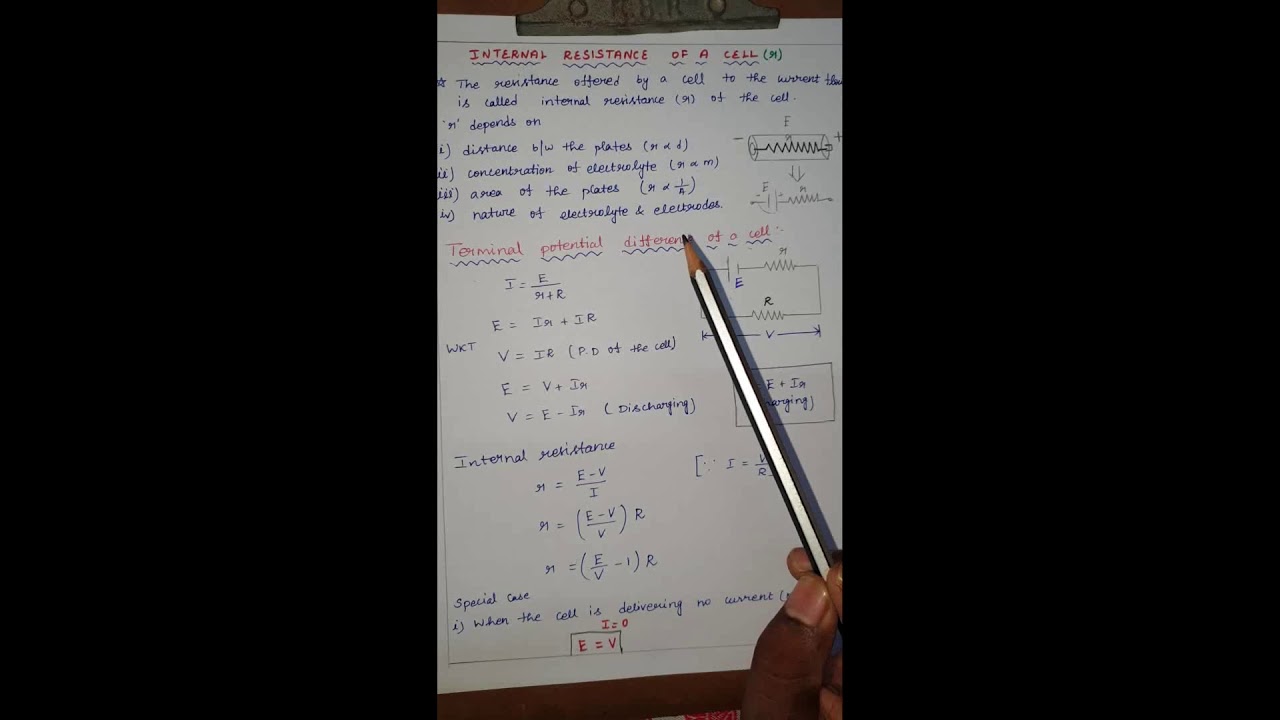 INTERNAL RESISTANCE OF A CELL (r)
☆ The resistance offered by a cell to the current flow
is called internal resistance (r) of the cell.
'r' depends on
i) distance b/w the plates (r ∝ d)
ii) concentration of electrolyte (r ∝ m)
iii) area of the plates (r ∝ 1/A)
iv) nature of electrolyte & electrodes.
E
- r +
E r
- +
Terminal potential difference of a cell:-
r
E
R
V
I = E/(r+R)
E = Ir + IR
WKT V = IR (P.D of the cell)
E = V + Ir
V = E - Ir (Discharging)
= E + Ir
Internal resistance
r = (E-V)/I
[∵ I = V/R
r = ((E-V)/V) R
r = (E/V - 1) R
Special case
i) When the cell is delivering no current
I = 0
E = V